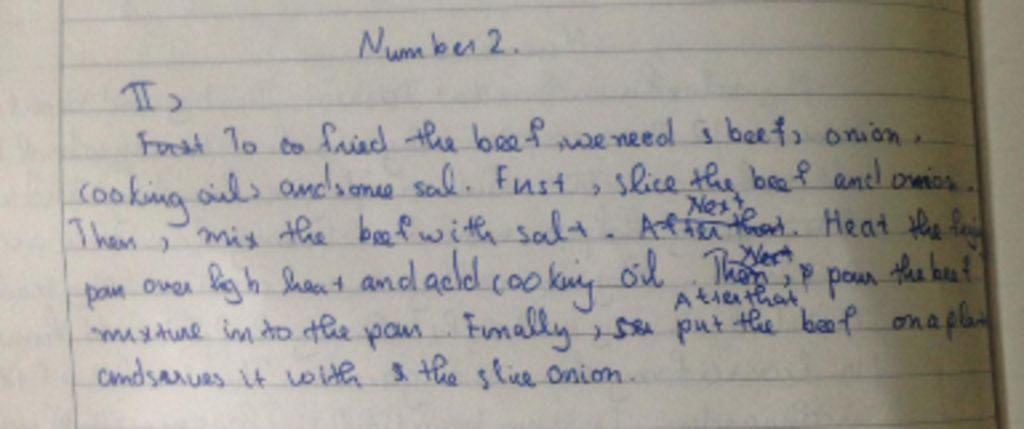 Number 2.
II,
First To co fried the beef, we need s beef, onion,
cooking oil, and some sal. First, slice the beef and onion.
Next
Then, mix the beef with salt. After that. Heat the
Next
pan over high heat and add cooking oil. Then, pour the beef
After that
mixture into the pan Finally, put the beef on a plat
and serves it with the slice onion.